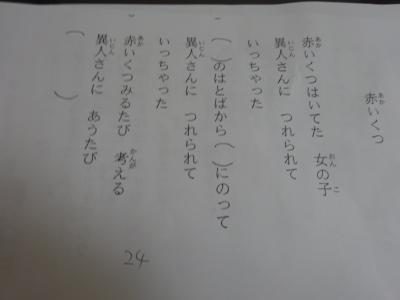 赤いくつ
赤いくつはいてた 女の子
異人さんに つれられて
いっちゃった
( )のはとばから( )にのって
異人さんに つれられて
いっちゃった
赤いくつみるたび 考える
異人さんに あうたび
( )
24